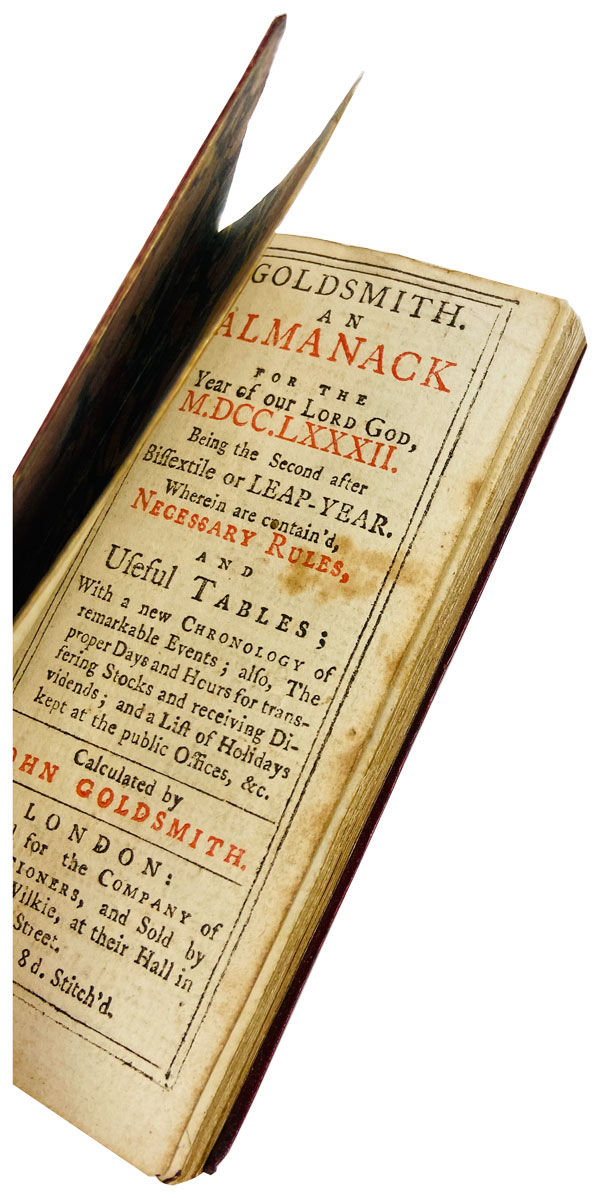 GOLDSMITH.
AN
ALMANACK
FOR THE
Year of our LORD GOD,
M.DCC.LXXXII.
Being the Second after
Biſſextile or LEAP-YEAR.
Wherein are contain'd,
NECESSARY RULES,
AND
Uſeful TABLES;
With a new CHRONOLOGY of
remarkable Events; alſo, The
proper Days and Hours for trans-
fering Stocks and receiving Di-
vidends; and a Liſt of Holidays
kept at the public Offices, &c.
Calculated by
OHN GOLDSMITH.
LONDON:
for the COMPANY of
TIONERS, and Sold by
Wilkie, at their Hall in
Street.
8 d. Stitch'd.